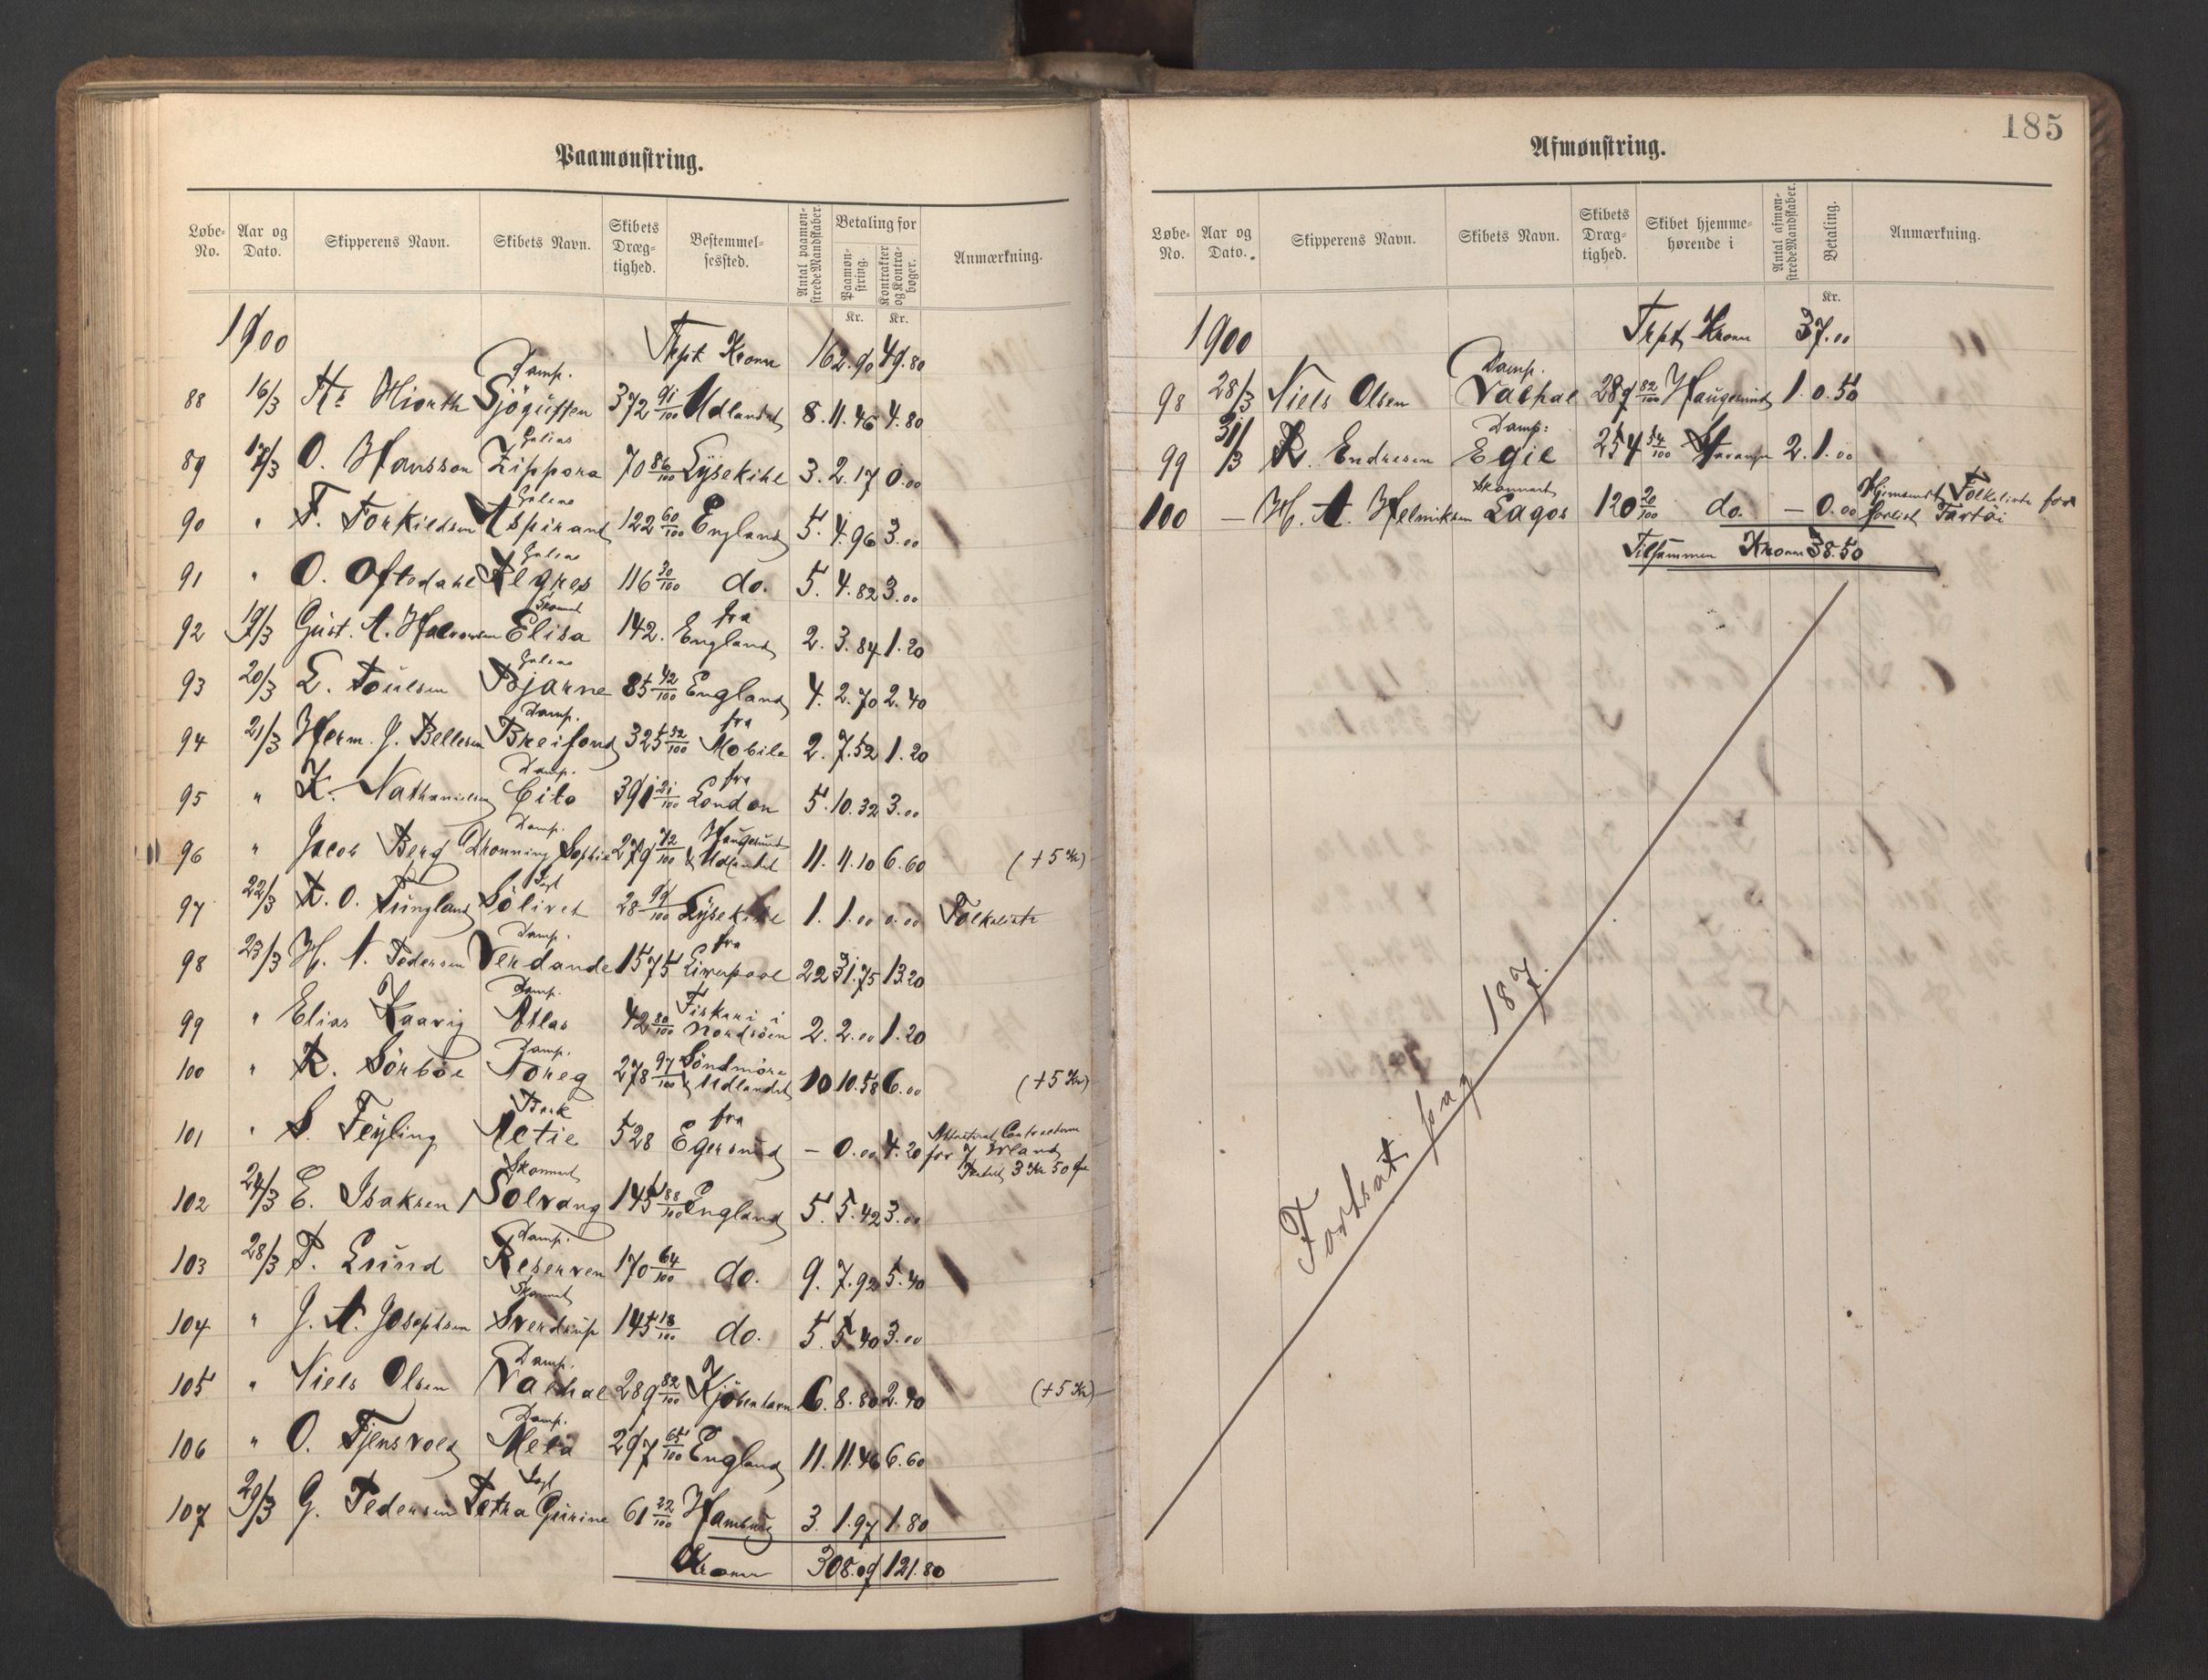 Paamønstring.
Løbe-No. Aar og Dato. Skipperens Navn. Skibets Navn. Skibets Dræg-tighed. Bestemmel-sessted. Antal paamøn-strede Mandskaber. Betaling for Paamøn-string. Kontrakter og Kontra-bøger. Anmærkning.
Kr. Kr.
1900 Trpt Kroner 162.90 49.80
88 16/3 Hiorth Damp. Sjögutten 372 91/100 Udlandet 8. 11.46 4.80
89 17/3 O. Hansson Galias Zippora 70 86/100 Lysekihl 3. 2.17 0.00
90 " F. Torkildsen Galeas Aspirant 122 60/100 England 5. 4.96 3.00
91 " O. Oftedahl Galeas 116 30/100 do. 5. 4.82 3.00
92 19/3 Gust. A. Halvorsen Skonnert Elisa 142. fra England 2. 3.84 1.20
93 20/3 L. Poulsen Galeas Bjarne 85 42/100 England 4. 2.70 2.40
94 21/3 Herm. J. Bellesen Damp. Breifond 325 52/100 fra Mobile 2. 7.52 1.20
95 " K. Nathanielsen Damp. Cito 391 21/100 fra London 5. 10.32 3.00
96 " Jacob Berg Damp. Dronning Sophie 279 72/100 Haugesund & Udlandet 11. 11.10 6.60 (+5 Kr)
97 22/3 K. O. Tungland Jagt Sölivet 28 99/100 Lysekihl 1. 1.00 0.00 Folkeliste
98 23/3 H. N. Pedersen Damp. Verdande 1575 fra Liverpool 22 31.75 13.20
99 " Elias Kaavig Damp. Atlas 42 80/100 Fiskeri i Nordsöen 2. 2.00 1.20
100 " R. Sörböe Damp. Noreg 278 97/100 Söndmöre & Udlandet 10 10.58 6.00 (+5 Kr)
101 " S. Feyling Bark Actie 528 fra Egersund – 0.00 4.20 for 7 Mand 3 Kr 50 Øre
102 24/3 E. Isaksen Skonnert Solvang 145 88/100 England 5. 5.42 3.00
103 28/3 P. Lund Damp. Reserven 170 64/100 do. 9. 7.92 5.40
104 " J. A. Josephsen Skonnert Sverdrup 145 18/100 do. 5 5.40 3.00
105 " Niels Olsen Damp. Valhal 289 82/100 Kjöbenhavn 6. 8.80 2.40 (+5 Kr)
106 " O. Tjensvold Damp. 297 65/100 England 11. 11.46 6.60
107 29/3 G. Pedersen Jagt Petra Gurine 61 22/100 Hamburg 3. 1.97 1.80
Kroner 308.09 121.80
185
Afmønstring.
Løbe-No. Aar og Dato. Skipperens Navn. Skibets Navn. Skibets Dræg-tighed. Skibet hjemme-hørende i Antal afmøn-strede Mandskaber. Betaling. Anmærkning.
Kr.
1900 Trpt Kroner 37.00
98 28/3 Niels Olsen Damp. Valhal 289 82/100 Haugesund 1. 0.50
99 31/3 R. Endresen Damp: Egil 254 54/100 Stavanger 2. 1.00
100 – H. A. Helmiksen Skonnert Lagos 120 20/100 do. – 0.00 Hjemsendt Folkeliste for forlist Fartöi
Tilsammen Kroner 38.50
Fortsat pag 187.